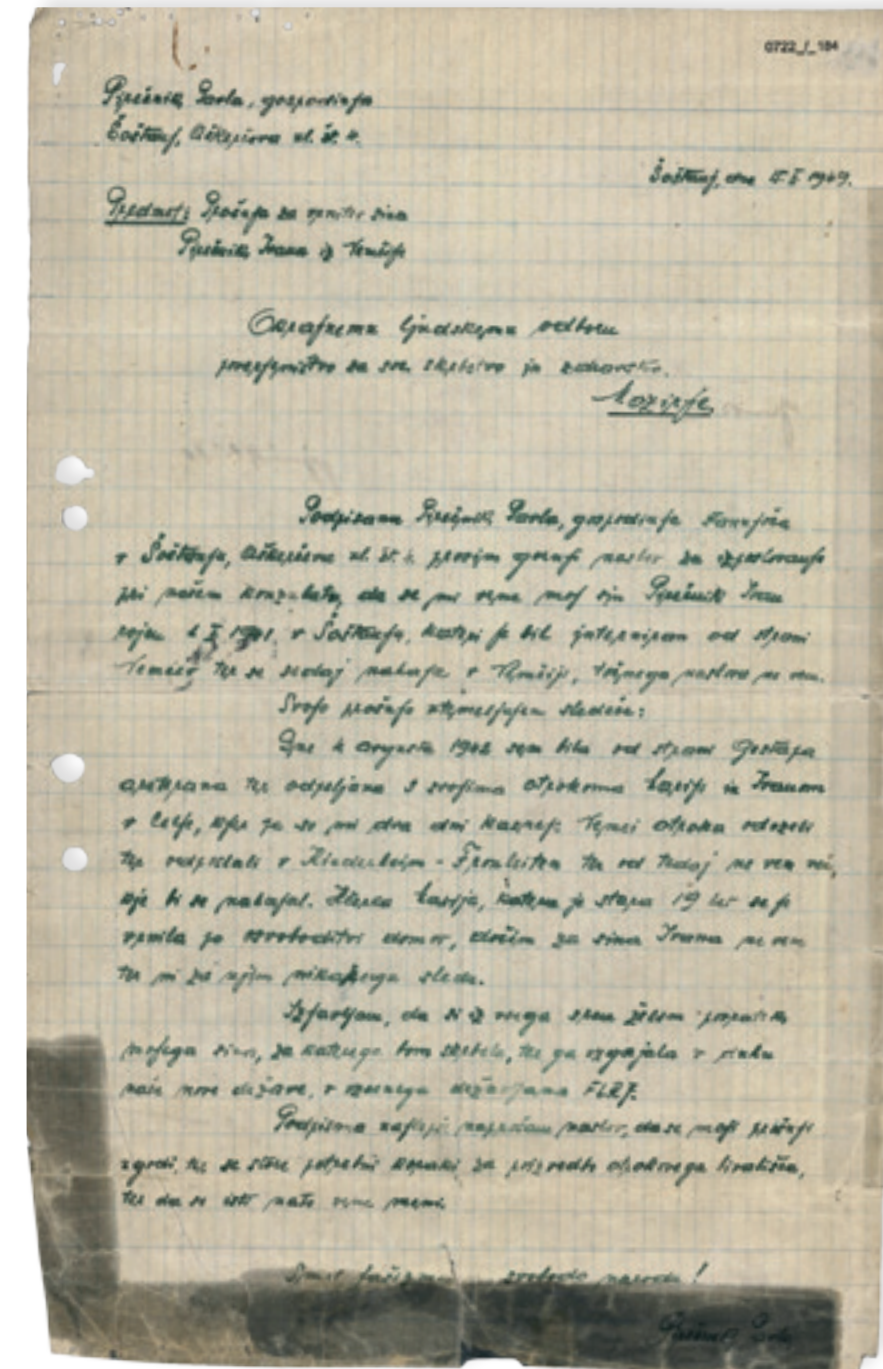 0722_/_184
Pirečnik Pavla, gospodinja
Šoštanj, Aškerčeva ul. št. 4.
Šoštanj, dne 1949.
Predmet: Prošnja za vrnitev sina
Pirečnik Ivana iz Nemčije
Okrajnemu ljudskemu odboru
poverjeništvo za soc. skrbstvo in zdravstvo.
Mozirje
Podpisana Pirečnik Pavla, gospodinja
v Šoštanju, Aškerčeva ul. št. 4. prosim gornji naslov za izposlovanje
pri našem konzulatu, da se mi vrne moj sin Pirečnik Ivan
rojen 1941, v Šoštanju, kateri je bil interniran od strani
Nemcev ter se sedaj nahaja v Nemčiji, točnega naslova ne vem.
Svojo prošnjo utemeljujem sledeče:
Dne 4 avgusta 1942 sem bila od strani Gestapa
aretirana ter odpeljana s svojima otrokoma Marijo in Ivanom
v Celje, kjer so mi dva dni kasneje Nemci otroka odvzeli
ter odpeljali v Kinderheim - Fronleiten ter od tedaj ne vem več,
kje bi se nahajal. Hčerka Marija, katera je stara 19 let se je
vrnila po osvoboditvi domov, dočim za sina Ivana ne vem
ter ni za njim nikakega sledu.
Izjavljam, da si iz vsega srca želim povratka
mojega sina, za katerega bom skrbela, ter ga vzgajala v duhu
naše nove države, v vzornega državljana FLRJ.
Podpisana najlepše naprošam naslov, da se moji prošnji
ugodi, ter se store potrebni koraki za
ter da se isti nato vrne meni.
Smrt fašizmu svoboda narodu!
Pirečnik Pavla